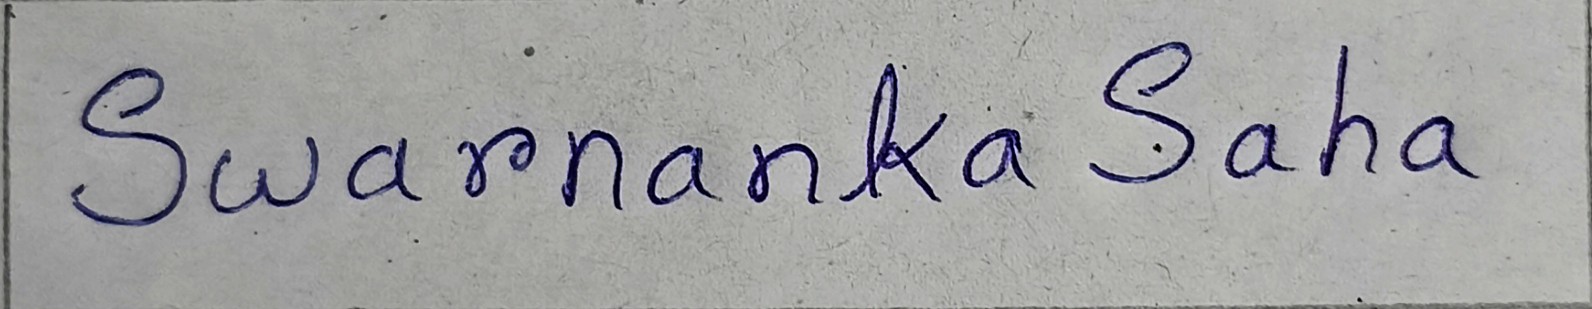 Swarnanka Saha